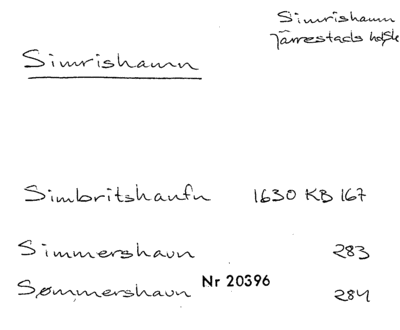 Simrishamn
Järrestads hd Sk
Simrishamn
Simbritshaufn 1630 KB 167
Simmershavn 283
Sømmershavn Nr 20396 284